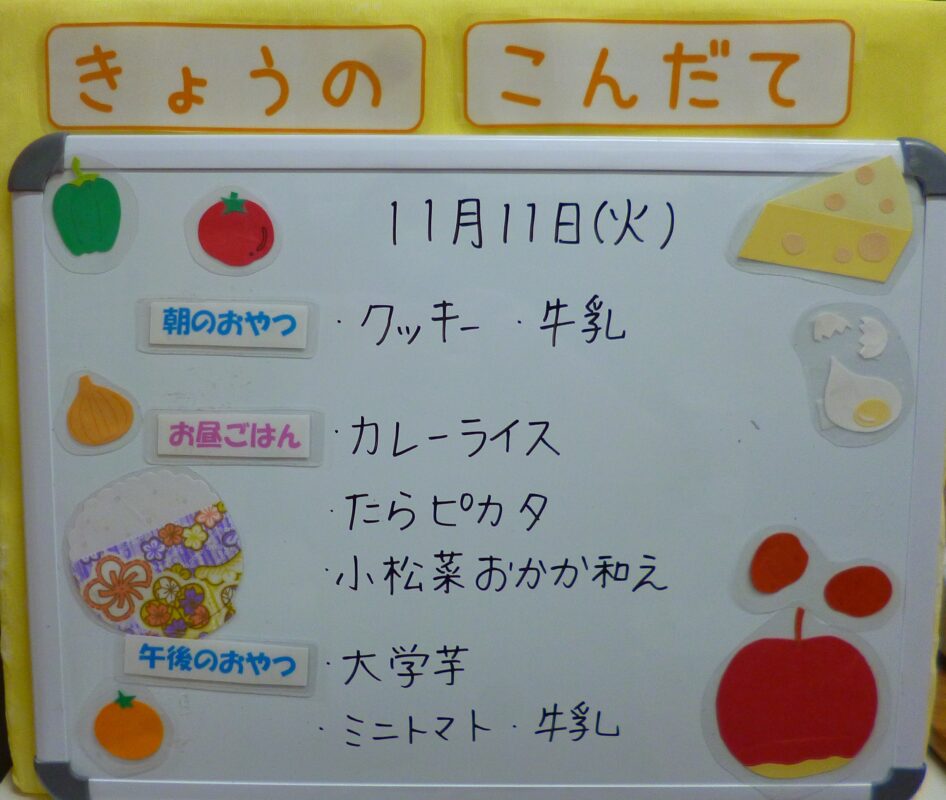 きょうの こんだて
11月11日(火)
朝のおやつ ・クッキー ・牛乳
お昼ごはん ・カレーライス
・たらピカタ
・小松菜おかか和え
午後のおやつ ・大学芋
・ミニトマト ・牛乳